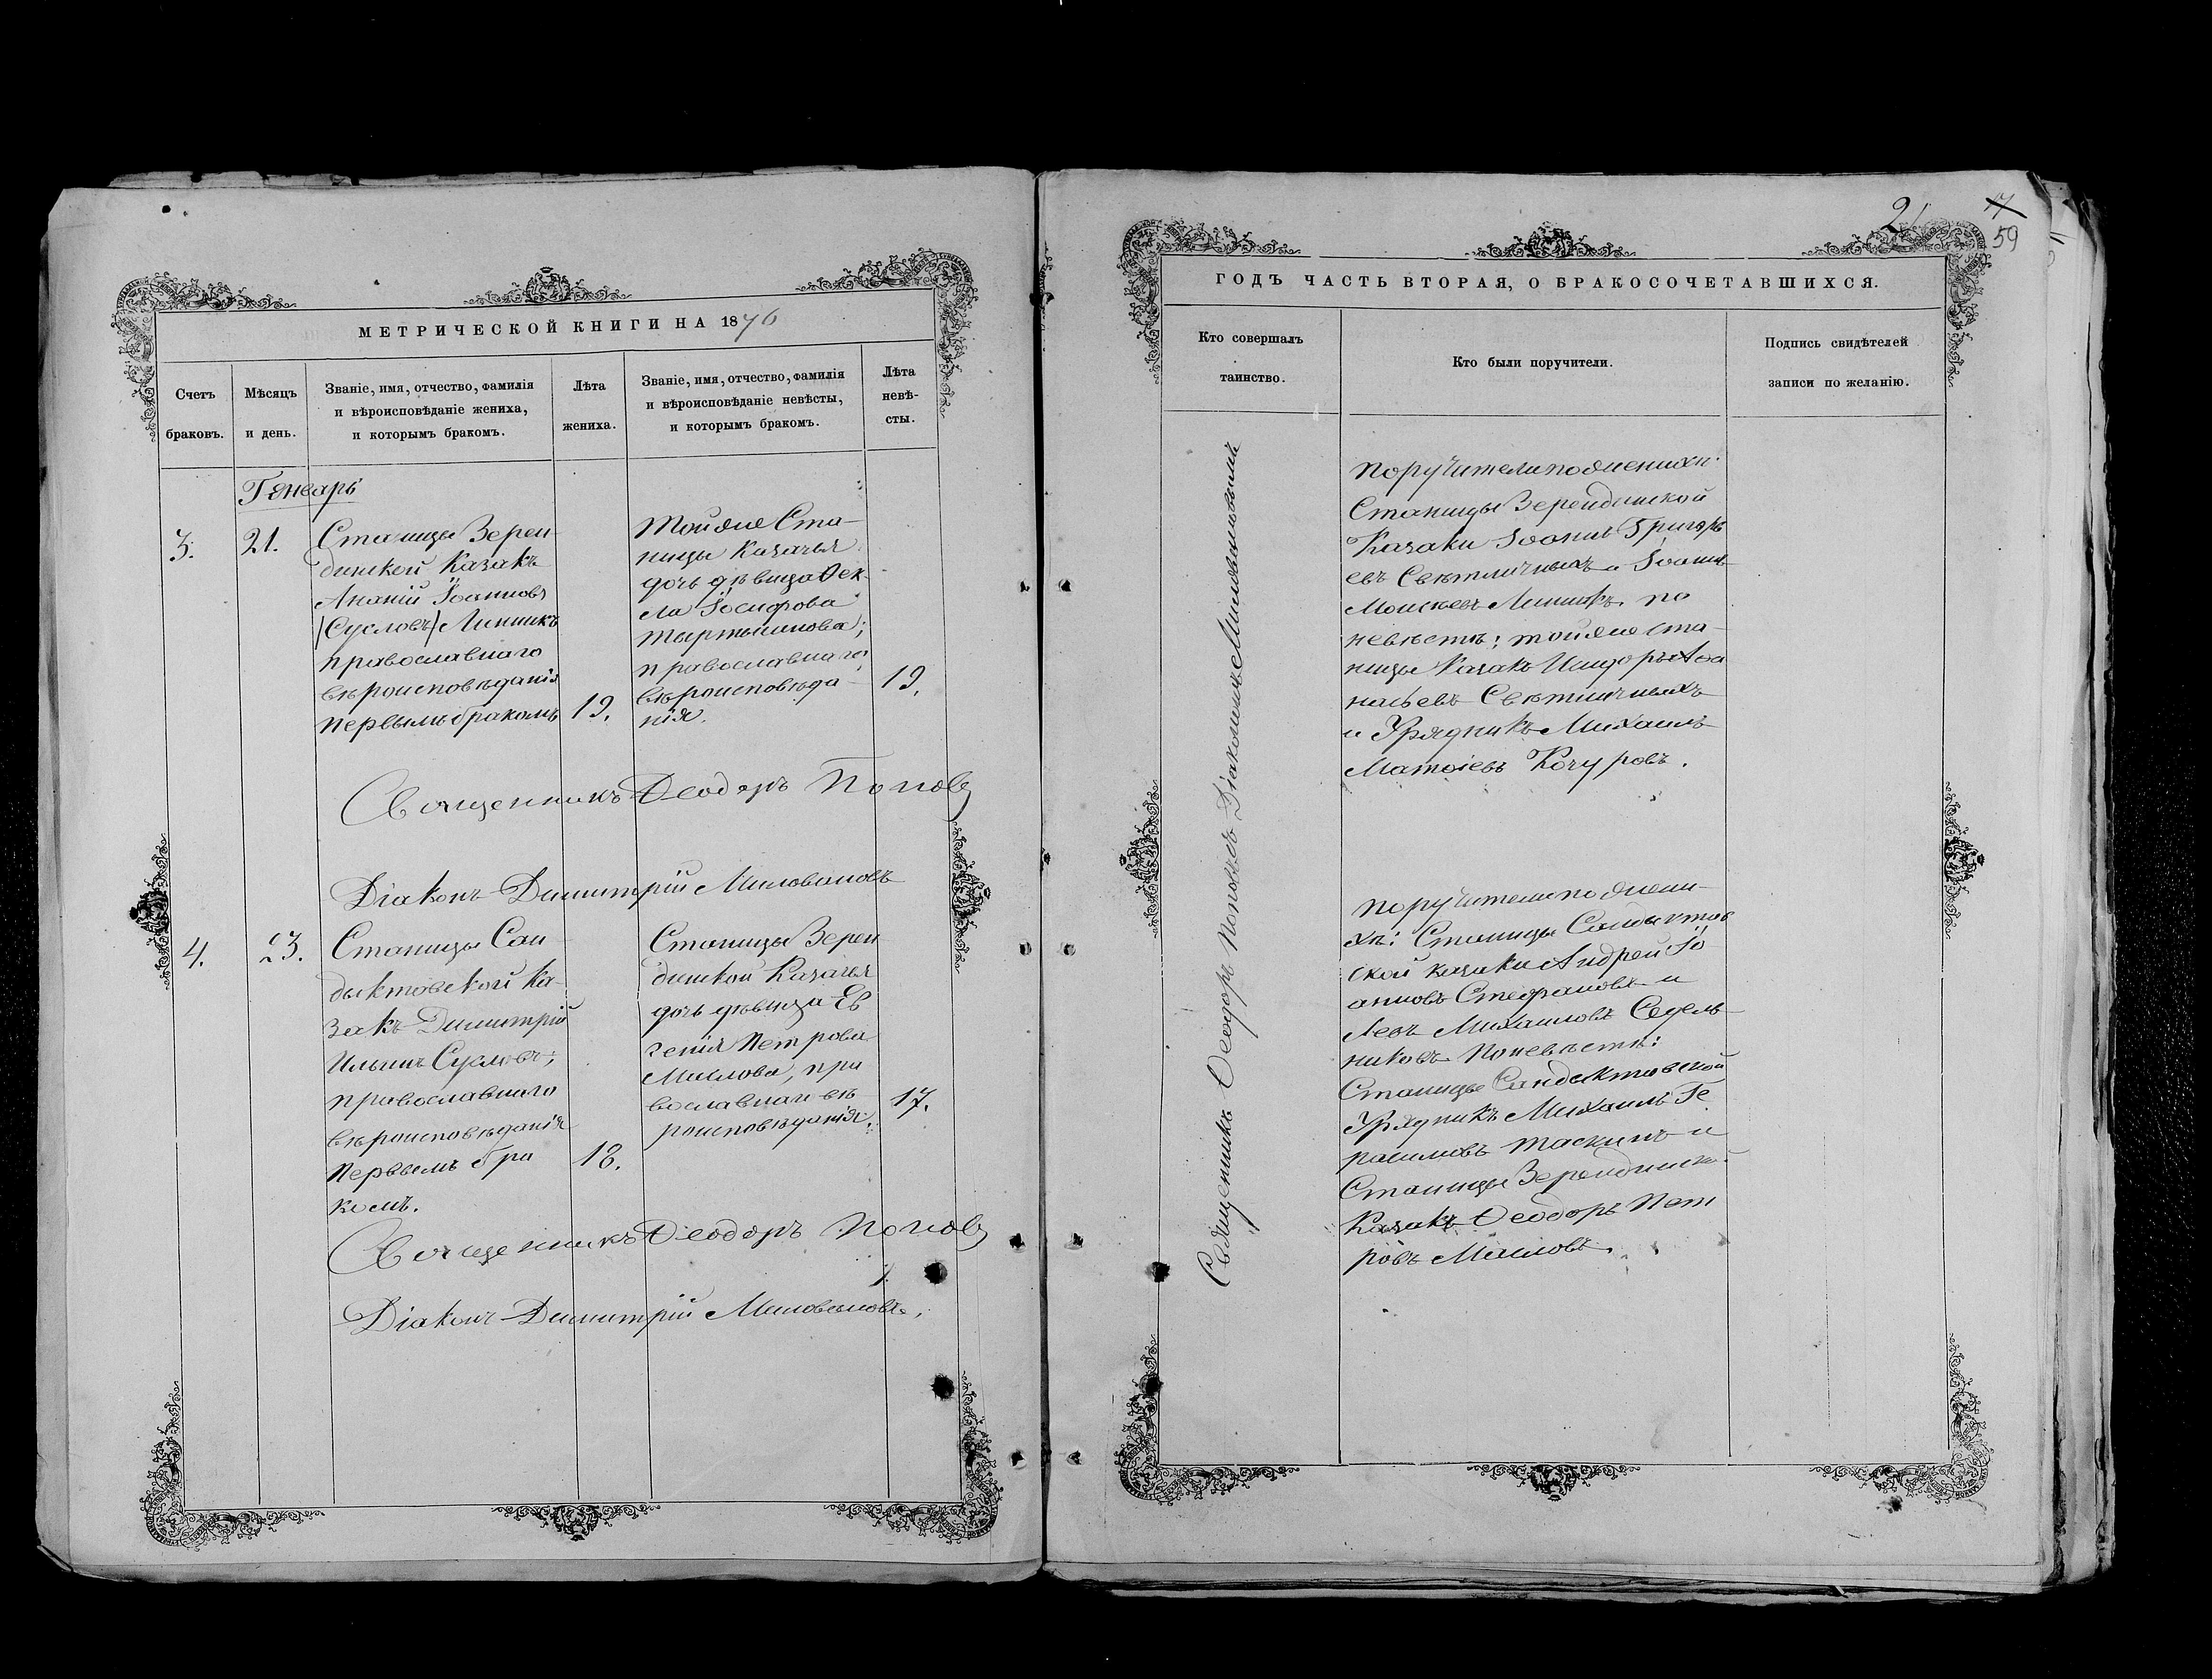 МЕТРИЧЕСКОЙ КНИГИ НА 1876
Счетъ
браковъ.
Мѣсяцъ
и день.
Званіе, имя, отчество, фамилія
и вѣроисповѣданіе жениха,
и которымъ бракомъ.
Лѣта
жениха.
Званіе, имя, отчество, фамилія
и вѣроисповѣданіе невѣсты,
и которымъ бракомъ.
Лѣта
невѣ-
сты.
Генварь
3.
21.
Станицы Зерен
динской Казакъ
Ананій Іоанновъ
/Сусловъ/ Линникъ
православнаго
вѣроисповѣданія
первымъ бракомъ
19.
Тойже Ста-
ницы Казачья
дочь дѣвица Ѳек-
ла Іосифова
православнаго
вѣроисповѣда-
нія.
19.
Священникъ Ѳеодоръ Поповъ
Діаконъ Димитрій Миловановъ
4.
23.
Станицы Сан
дыктовской Ка-
закъ Димитрій
Ильинъ Сусловъ;
православнаго
вѣроисповѣданія
первымъ бра
комъ.
18.
Станицы Зерен
динской Казачья
дочь дѣвица Ев
генія Петрова
Маслова, пра
вославнаг вѣ
роисповѣданія.
17.
Священникъ Ѳеодоръ Поповъ
Діаконъ Димитрій Миловановъ.
21
59
ГОДЪ ЧАСТЬ ВТОРАЯ, О БРАКОСОЧЕТАВШИХСЯ.
Кто совершалъ
таинство.
Кто были поручители.
Подпись свидѣтелей
записи по желанію.
Священникъ Ѳеодоръ Поповъ съ Діакономъ Миловановымъ
поручители по женихѣ
Станицы Зерендинской
Казаки Іоаннъ Григорь
евъ Свѣтличныхъ и Іоаннъ
Моисеевъ Линникъ по
невѣстѣ: тойже ста-
ницы Казакъ Исидоръ Аѳа
насьевъ Свѣтличныхъ
и Урядникъ Михаилъ
Матѳіевъ Кочуровъ.
поручители по жени-
хѣ: Станицы Сандыктов
ской казаки Андрей Іо
анновъ Стефановъ и
Левъ Михаиловъ Седель-
никовъ По невѣстѣ:
Станицы Сандыктовской
Урядникъ Михаилъ Ге
расимовъ Таскинъ и
Станицы Зерендинской
Казакъ Ѳеодоръ Пет
ровъ Масловъ.